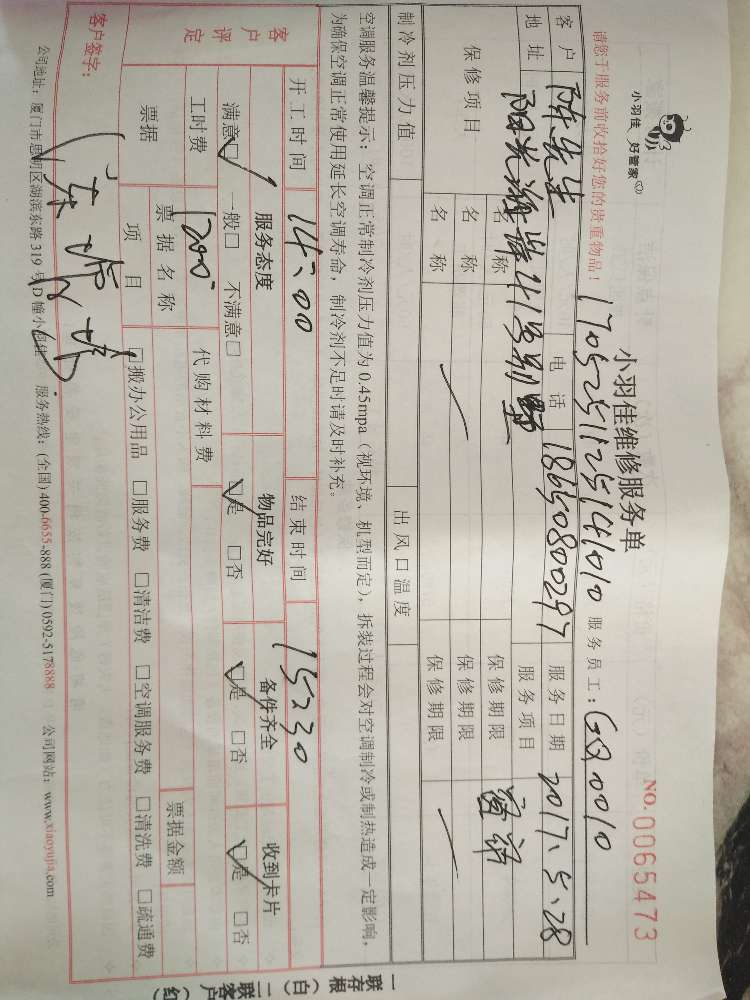 小羽佳 好管家
小羽佳维修服务单
NO.0065473
请您于服务前收拾好您的贵重物品！
17052511251141010 服务员工：GQ0010
客户 陈先生 电话 18650800297 服务日期 2017.5.28
地址 阳光海岸 服务项目
保修项目 名称 保修期限
名称 保修期限
名称 保修期限
制冷剂压力值 出风口温度
空调服务温馨提示：空调正常制冷剂压力值为0.45mpa（视环境、机型而定），拆装过程会对空调制冷或制热造成一定影响，
为确保空调正常使用延长空调寿命，制冷剂不足时请及时补充。
开工时间 14:00 结束时间 15:30
客户评定 服务态度 物品完好 备件齐全 收到卡片
满意☑ 一般□ 不满意□ ☑是 □否 ☑是 □否 ☑是 □否
工时费 1200 代购材料费
票据 票据名称 票据金额
项目 □搬办公用品 □服务费 □清洁费 □空调服务费 □清洗费 □疏通费
客户签字：
公司地址：厦门市思明区湖滨东路319号D幢小羽佳 服务热线：(全国)400-6655-888 (厦门)0592-5178888 公司网站：www.xiaoyujia.com
一联存根（白）二联客户（红）